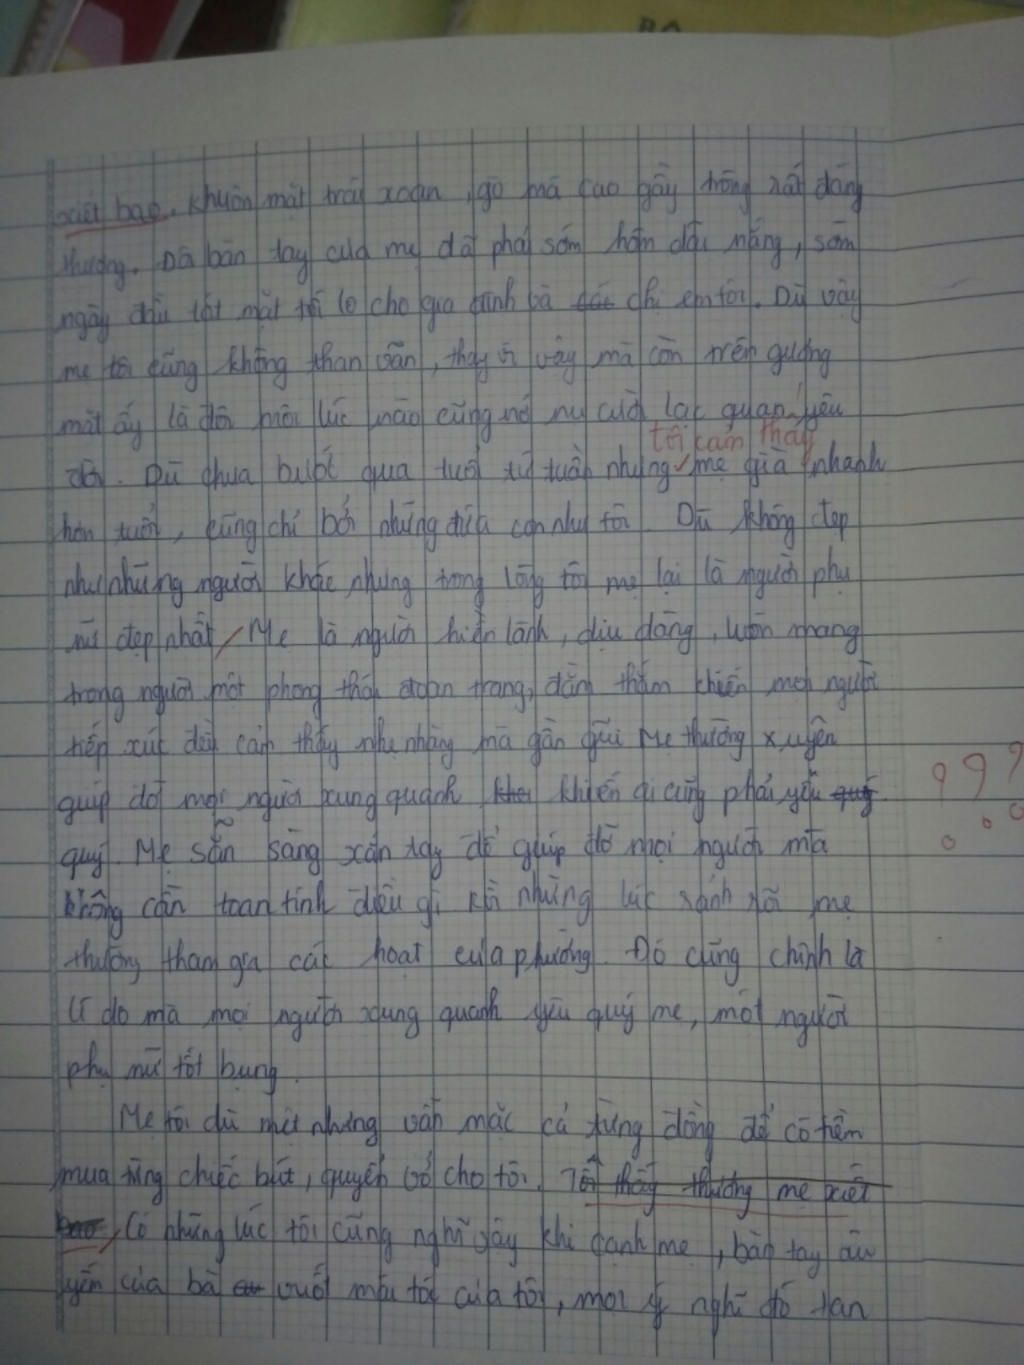 xiết bao. Khuôn mặt trái xoan, gò má cao gầy trông rất đáng
thương. Dã bàn tay của mẹ đã phải sớm hôm dầu nắng, sớm
ngày đầu tắt mặt tối lo cho gia đình và chị em tôi. Dù vậy
mẹ tôi cũng không than vãn, thay vì vậy mà còn trên gương
mặt ấy là đôi môi lúc nào cũng nở nụ cười lạc quan, yêu
tôi cảm thấy
đời. Dù chưa bướt qua tuổi tứ tuần nhưng mẹ già nhanh
hơn tuổi, cũng chỉ bởi những đứa con như tôi. Dù không đẹp
như những người khác nhưng trong lòng tôi mẹ lại là người phụ
nữ đẹp nhất. Mẹ là người hiền lành, dịu dàng, luôn mang
trong người một phong thái đoan trang, đằm thắm khiến mọi người
tiếp xúc đều cảm thấy nhẹ nhàng mà gần gũi. Mẹ thường xuyên
giúp đỡ mọi người xung quanh khiến ai cũng phải yêu
quý. Mẹ sẵn sàng xắn tay để giúp đỡ mọi người mà
không cần toan tính điều gì. Khi những lúc rảnh rỗi mẹ
thường tham gia các hoạt của phường. Đó cũng chính là
lí do mà mọi người xung quanh yêu quý mẹ, một người
phụ nữ tốt bụng.
Mẹ tôi dù mệt nhưng vẫn mặc cả từng đồng để có tiền
mua từng chiếc bút, quyển vở cho tôi. Tôi thấy thương mẹ xiết
bao. Có những lúc tôi cũng nghĩ vậy khi cạnh mẹ, bàn tay âu
yếm của bà vuốt mái tóc của tôi, mọi ý nghĩ đó tan